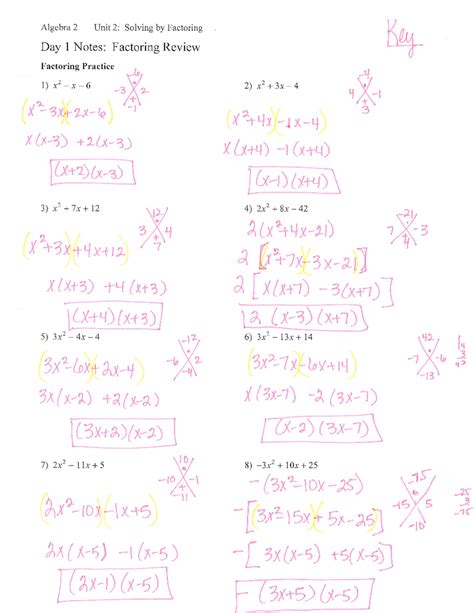 Algebra 2 Unit 2: Solving by Factoring
Key
Day 1 Notes: Factoring Review
Factoring Practice
1) x² – x – 6
-6
-3 2
-1
(x²-3x)(+2x-6)
x(x-3) +2(x-3)
(x+2)(x-3)
2) x² + 3x – 4
-4
4 -1
3
(x²+4x)(-1x-4)
x(x+4) -1(x+4)
(x-1)(x+4)
3) x² + 7x + 12
12
3 4
7
(x²+3x)(+4x+12)
x(x+3) +4(x+3)
(x+4)(x+3)
4) 2x² + 8x – 42
-21
7 -3
4
2(x²+4x-21)
2[(x²+7x)(-3x-21)]
2[x(x+7) -3(x+7)
2 (x-3)(x+7)
5) 3x² – 4x – 4
-12
-6 2
-4
(3x²-6x)(+2x-4)
3x(x-2) +2(x-2)
(3x+2)(x-2)
6) 3x² – 13x + 14
42
-7 -6
-13
(3x²-7x)(-6x+14)
x(3x-7) -2(3x-7)
(x-2)(3x-7)
7) 2x² – 11x + 5
10
-10 -1
-11
(2x²-10x)(-1x+5)
2x(x-5) -1(x-5)
(2x-1)(x-5)
8) –3x² + 10x + 25
-75
-15 5
-10
-25
3
-75
-(3x²-10x-25)
-[(3x²-15x)(+5x-25)]
-[3x(x-5) +5(x-5)
-(3x+5)(x-5)